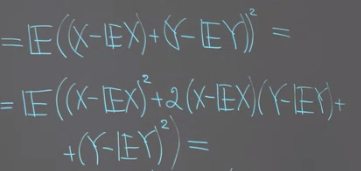 =𝔼((X-𝔼X)+(Y-𝔼Y))²=
=𝔼((X-𝔼X)²+2(X-𝔼X)(Y-𝔼Y)+
+(Y-𝔼Y)²)=